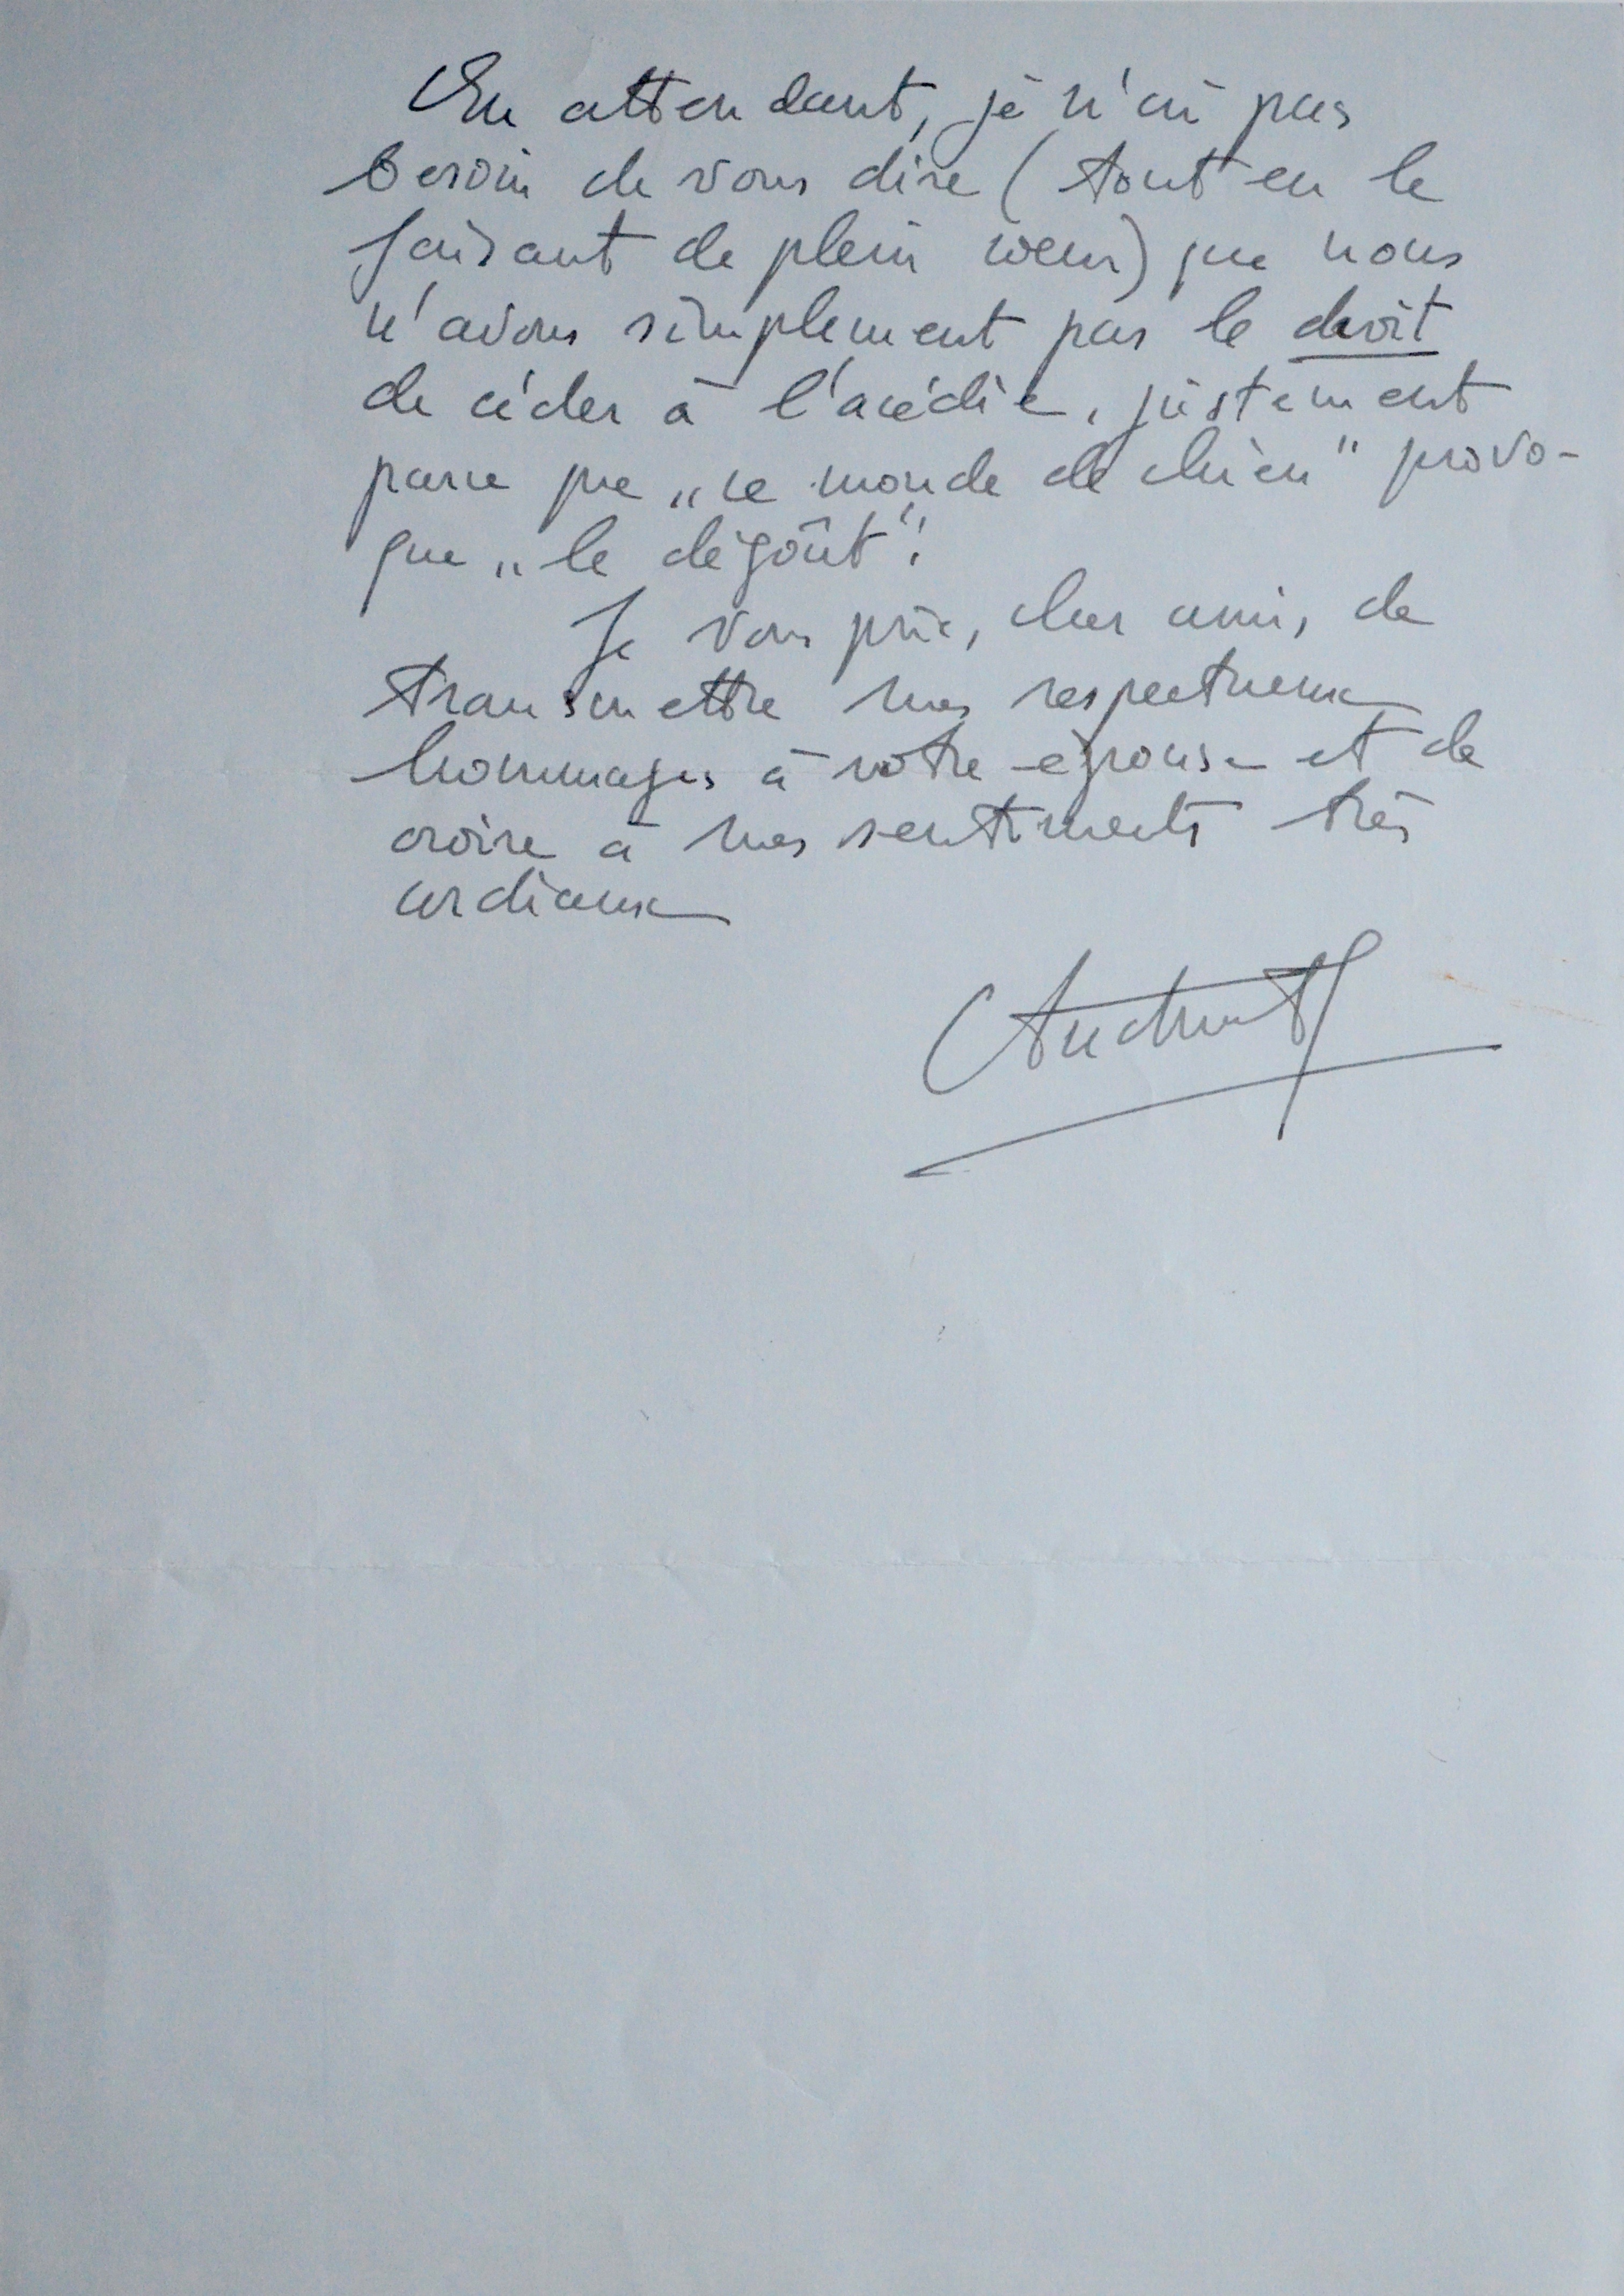 En attendant, je n'ai pas
besoin de vous dire (tout en le
faisant de plein cœur) que nous
n'avons simplement pas le droit
de céder à l'acédie, justement
parce que „ce monde de chien" provo-
que „le dégoût".
Je vous prie, cher ami, de
transmettre mes respectueux
hommages à votre épouse et de
croire à mes sentiments très
cordiaux